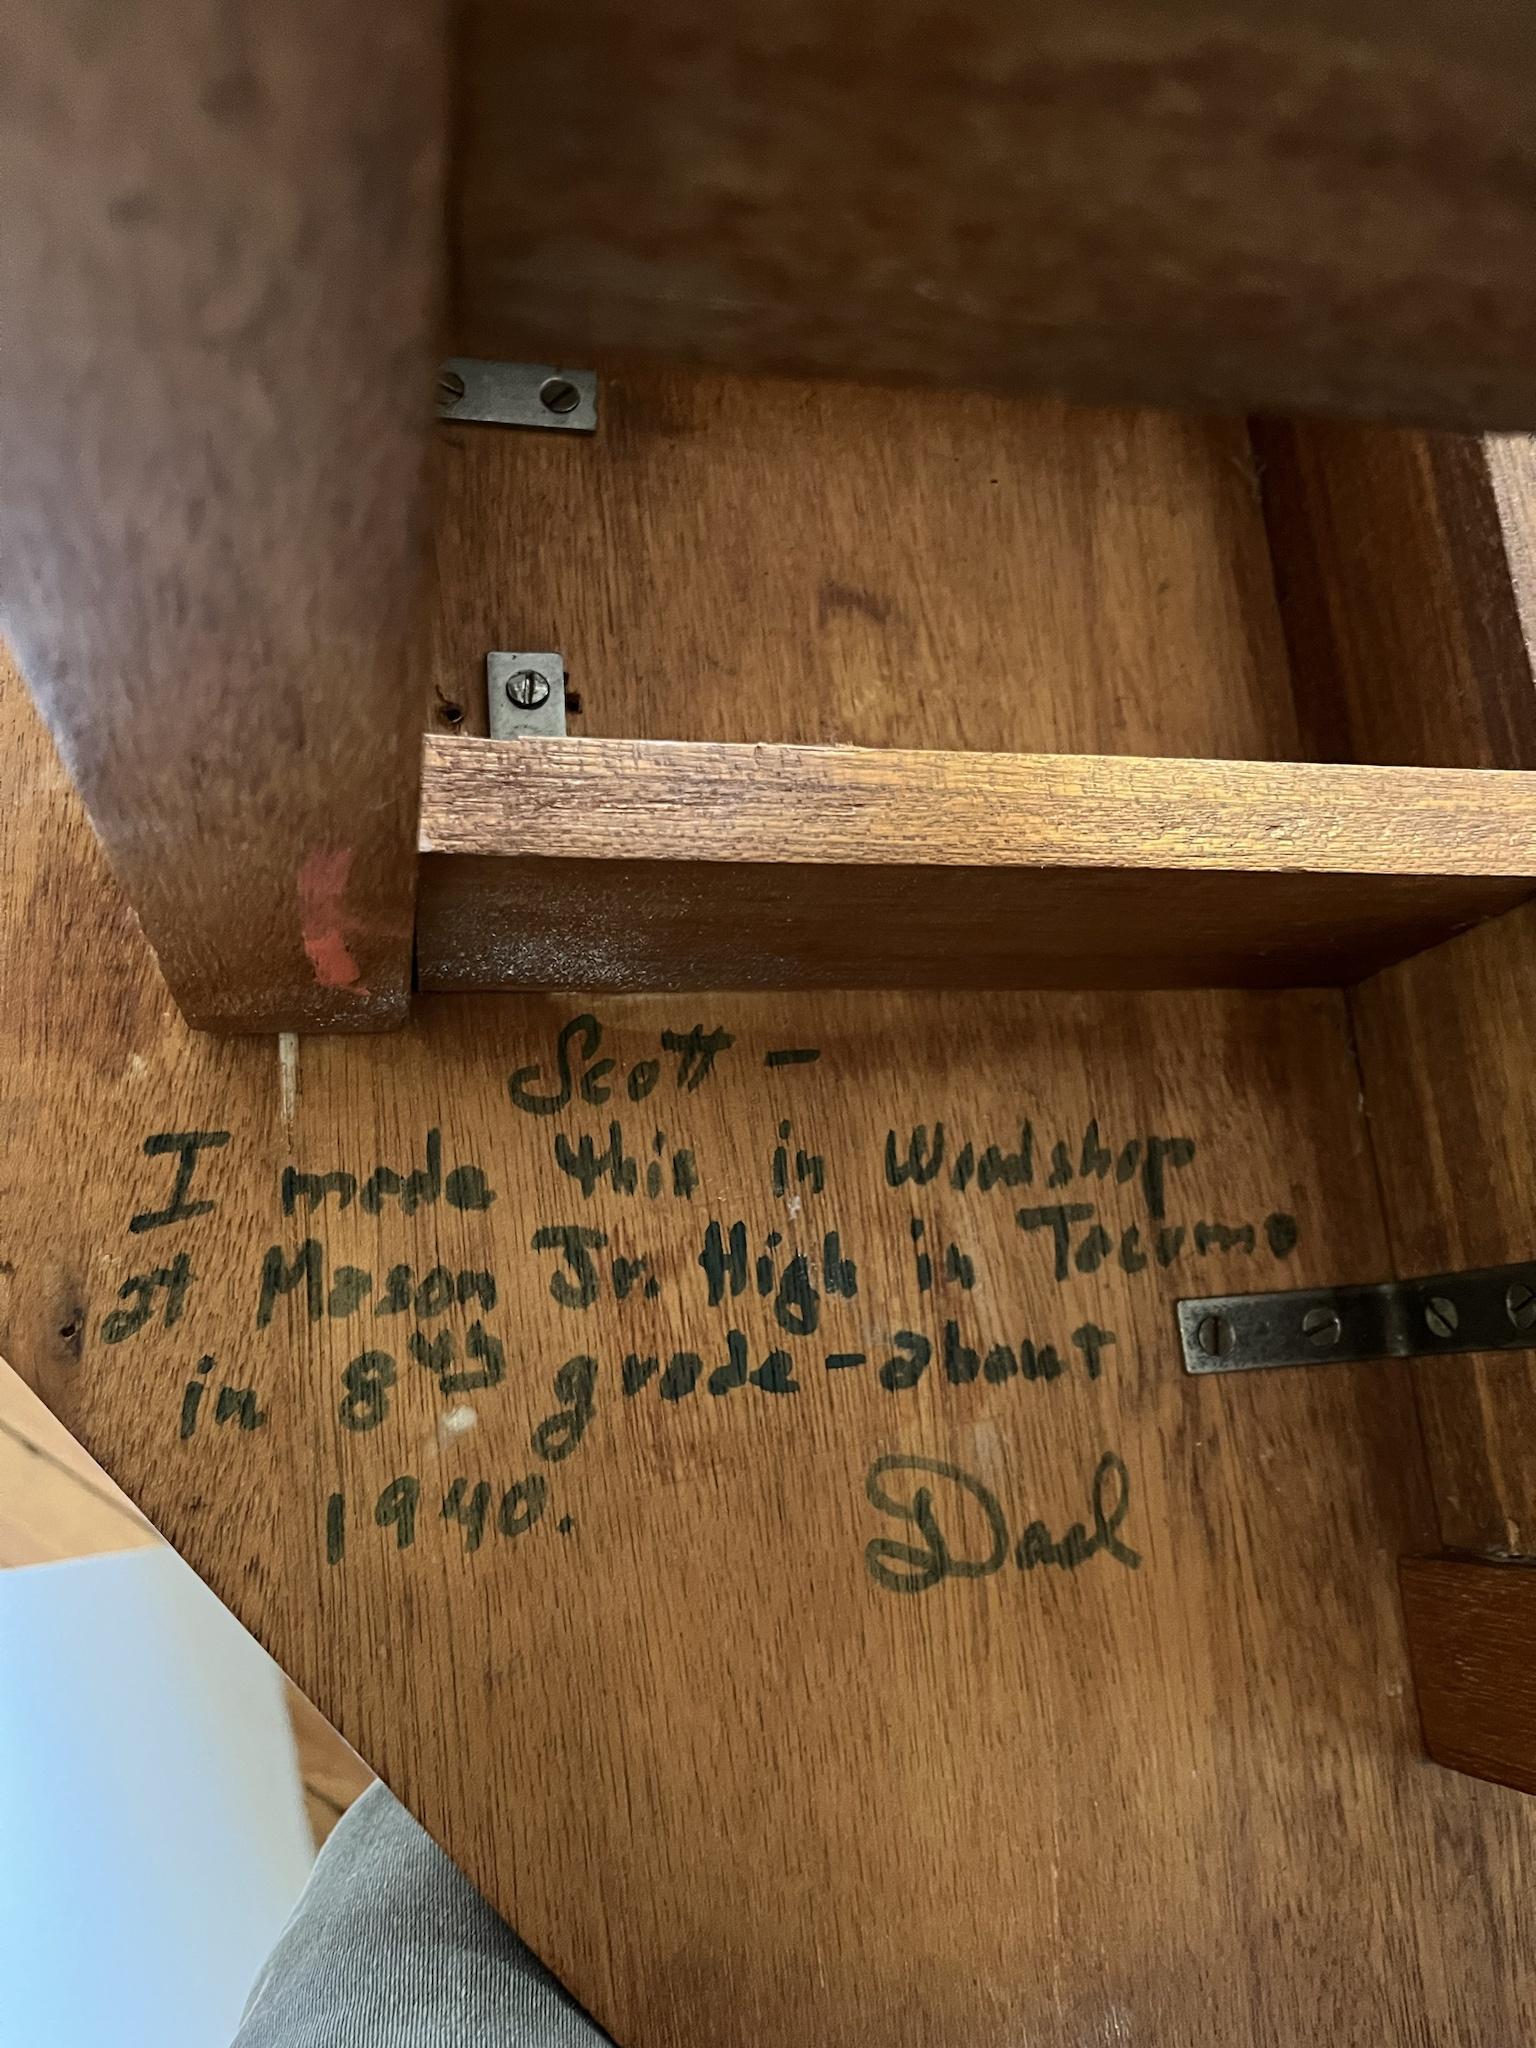 Scott -
I made this in Woodshop
at Mason Jr. High in Tacoma
in 8th grade - about
1940.
Dad